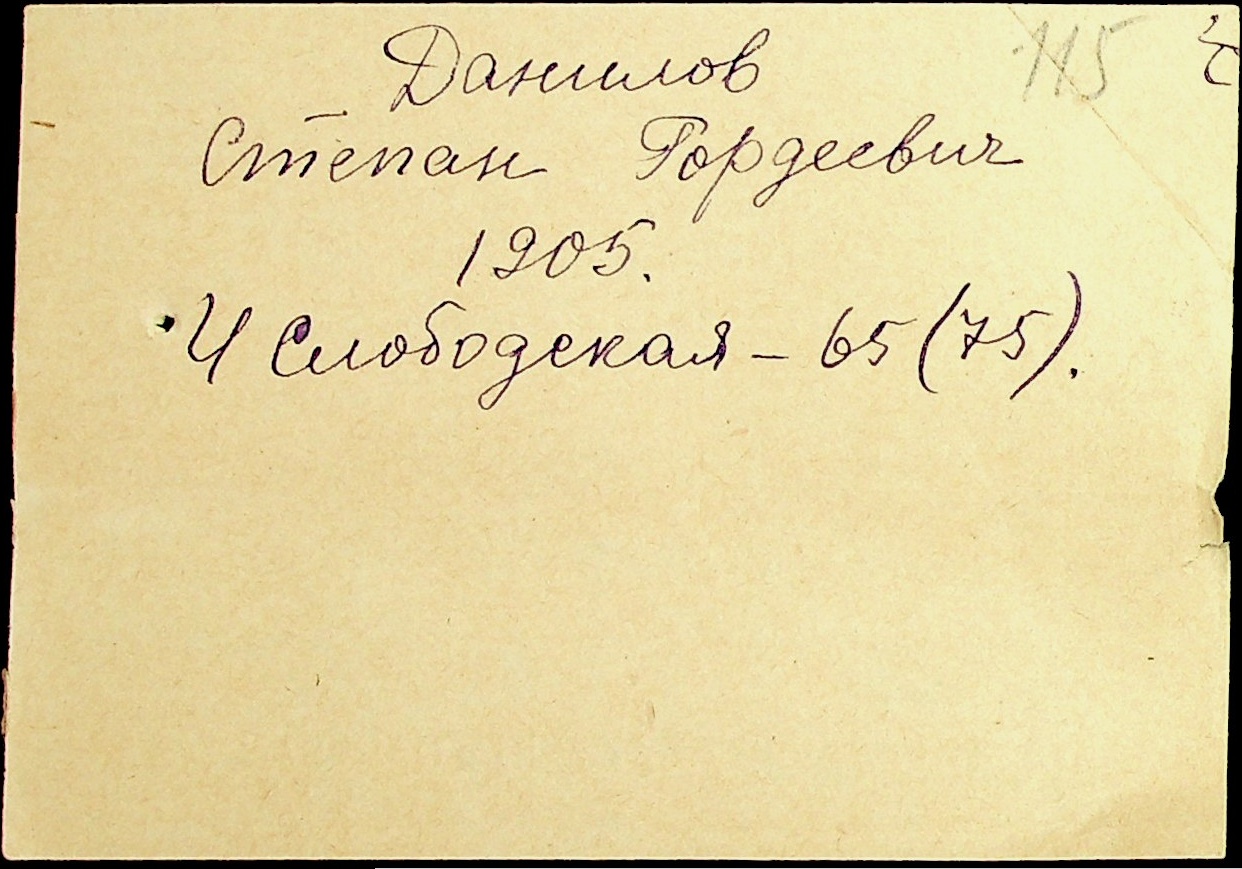 115
Данилов
Степан Гордеевич
1905.
4 Слободская – 65 (75).